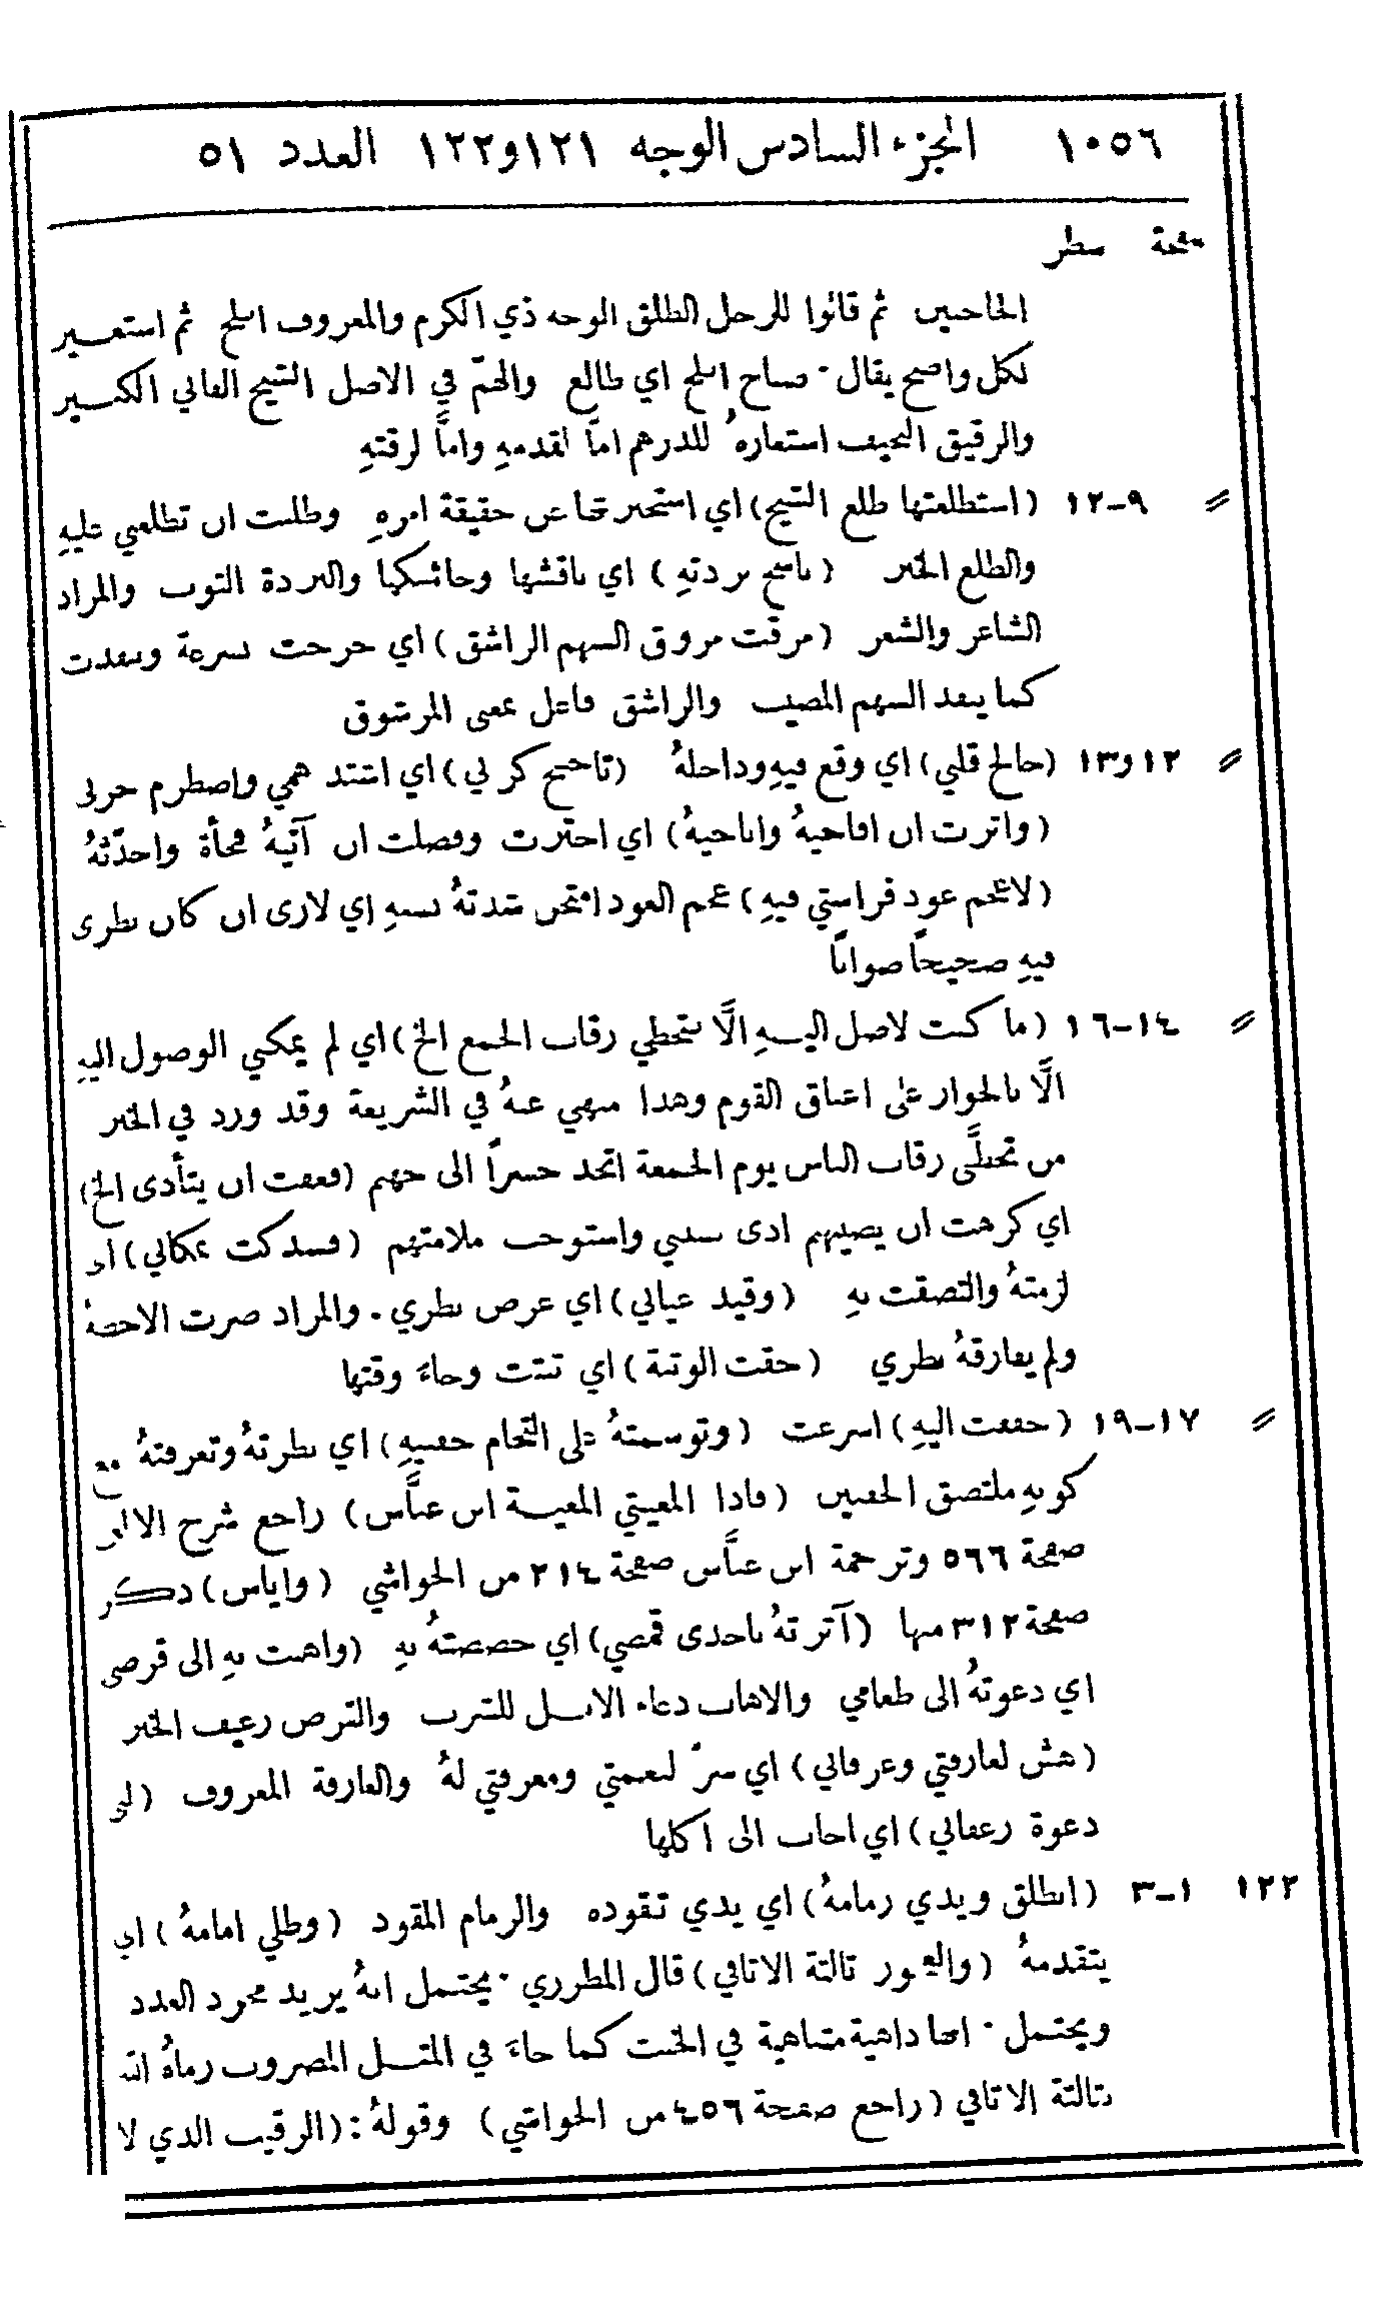 ١٠٥٦ الجزء السادس الوجه ١٢١و١٢٢ العدد ٥١
صفحة سطر
الحاجبين ثم قالوا للرجل الطلق الوجه ذي الكرم والمعروف ابلج ثم استعـير
لكل واضح يقال: صباح ابلج اي طالع والهمّ في الاصل الشيخ الفاني الكبـير
والرقيق النحيف استعارهُ للدرهم امَّا لقدمهِ وامَّا لرقتهِ
〃 ٩-١٢ (استطلعتها طلع الشيخ) اي استخبرتها عن حقيقة امرهِ وطلبت ان تطلعني عليهِ
والطلع الخبر (ناسج بردتهِ) اي ناقشها وحائكها والبردة الثوب والمراد
الشاعر والشعر (مرقت مروق السهم الراشق) اي خرجت بسرعة ونفذت
كما ينفذ السهم المصيب والراشق فاعل بمعنى المرشوق
〃 ١٢و١٣ (خالج قلبي) اي وقع فيهِ وداخلهُ (تأجج كربي) اي اشتد همي واضطرم حزني
(وآثرت ان افاجيهُ واناجيهُ) اي اخترت وفضلت ان آتيهُ فجأة واحدّثهُ
(لاعجم عود فراستي فيهِ) عجم العود امتحن شدتهُ بسنهِ اي لارى ان كان نظري
فيهِ صحيحاً صواباً
〃 ١٤-١٦ (ما كنت لاصل اليـهِ الَّا بتخطي رقاب الجمع الخ) اي لم يمكني الوصول اليهِ
الَّا بالجواز على اعناق القوم وهذا منهي عنهُ في الشريعة وقد ورد في الخبر
من تخطَّى رقاب الناس يوم الجمعة اتخذ جسراً الى جهنم (فعفت ان يتأذى الخ)
اي كرهت ان يصيبهم اذى بسببي واستوجب ملامتهم (فسدكت بمكاني) اي
لزمتهُ والتصقت بهِ (وقيد عياني) اي غرض نظري. والمراد صرت الاحظهُ
ولم يفارقهُ نظري (حقت الوثبة) اي ثبتت وجاءَ وقتها
〃 ١٧-١٩ (خففت اليهِ) اسرعت (وتوسمتهُ على التحام جفنيهِ) اي نظرتهُ وتعرفتهُ مع
كونهِ ملتصق الجفنين (فاذا المعيتي المعيـة ابن عبَّاس) راجع شرح
صفحة ٥٦٦ وترجمة ابن عبَّاس صفحة ٢١٤ من الحواشي (واياس) ذكر
صفحة ٣١٢ منها (آثرتهُ باحدى قمصي) اي خصصتهُ بهِ (واهبت بهِ الى قرصي
اي دعوتهُ الى طعامي والاهاب دعاء الابـل للشرب والقرص رغيف الخبز
(هش لعارفتي وعرفاني) اي سرّ لنعمتي ومعرفتي لهُ والعارفة المعروف (لبى
دعوة رغفاني) اي اجاب الى اكلها
١٢٢ ١-٣ (انطلق ويدي زمامهُ) اي يدي تقوده والزمام المقود (وظلي امامهُ) اي
يتقدمهُ (والعجوز ثالثة الاثافي) قال المطرزي: يحتمل انهُ يريد مجرد العدد
ويحتمل: انها داهية متناهية في الخبث كما جاءَ في المثـل المضروب رماهُ الله
بثالثة الاثافي (راجع صفحة ٤٥٦ من الحواشي) وقولهُ: (الرقيب الذي لا